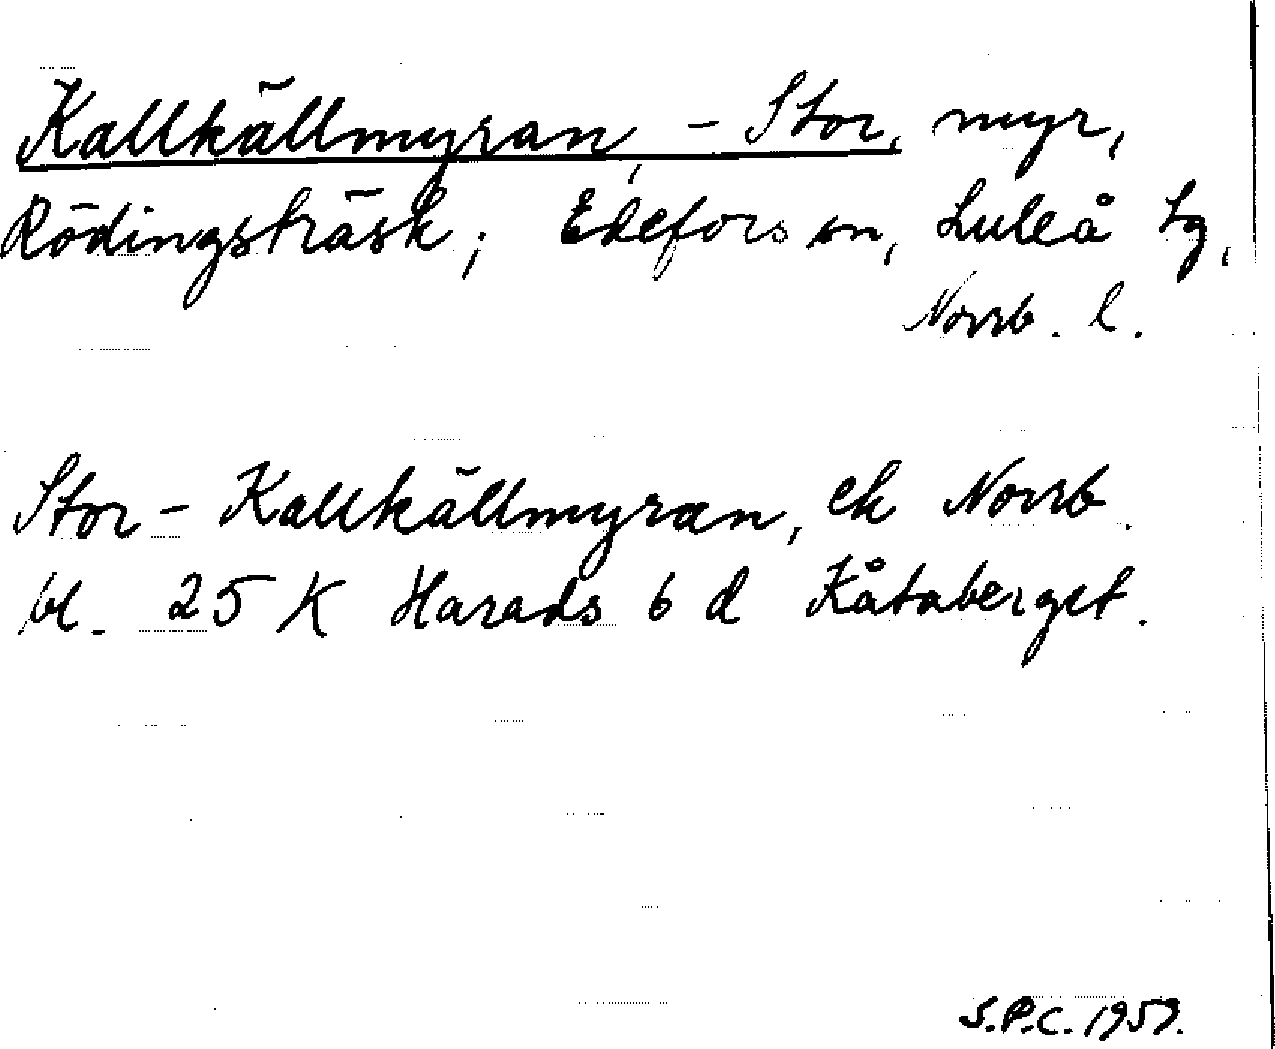 Kallkällmyran, - Stor, myr,
Rödingsträsk; Edefors sn, Luleå lg,
Norrb. l.
Stor-Kallkällmyran, ek Norrb.
bl. 25 K Harads 6 d Kåtaberget.
S.P.C. 1959.